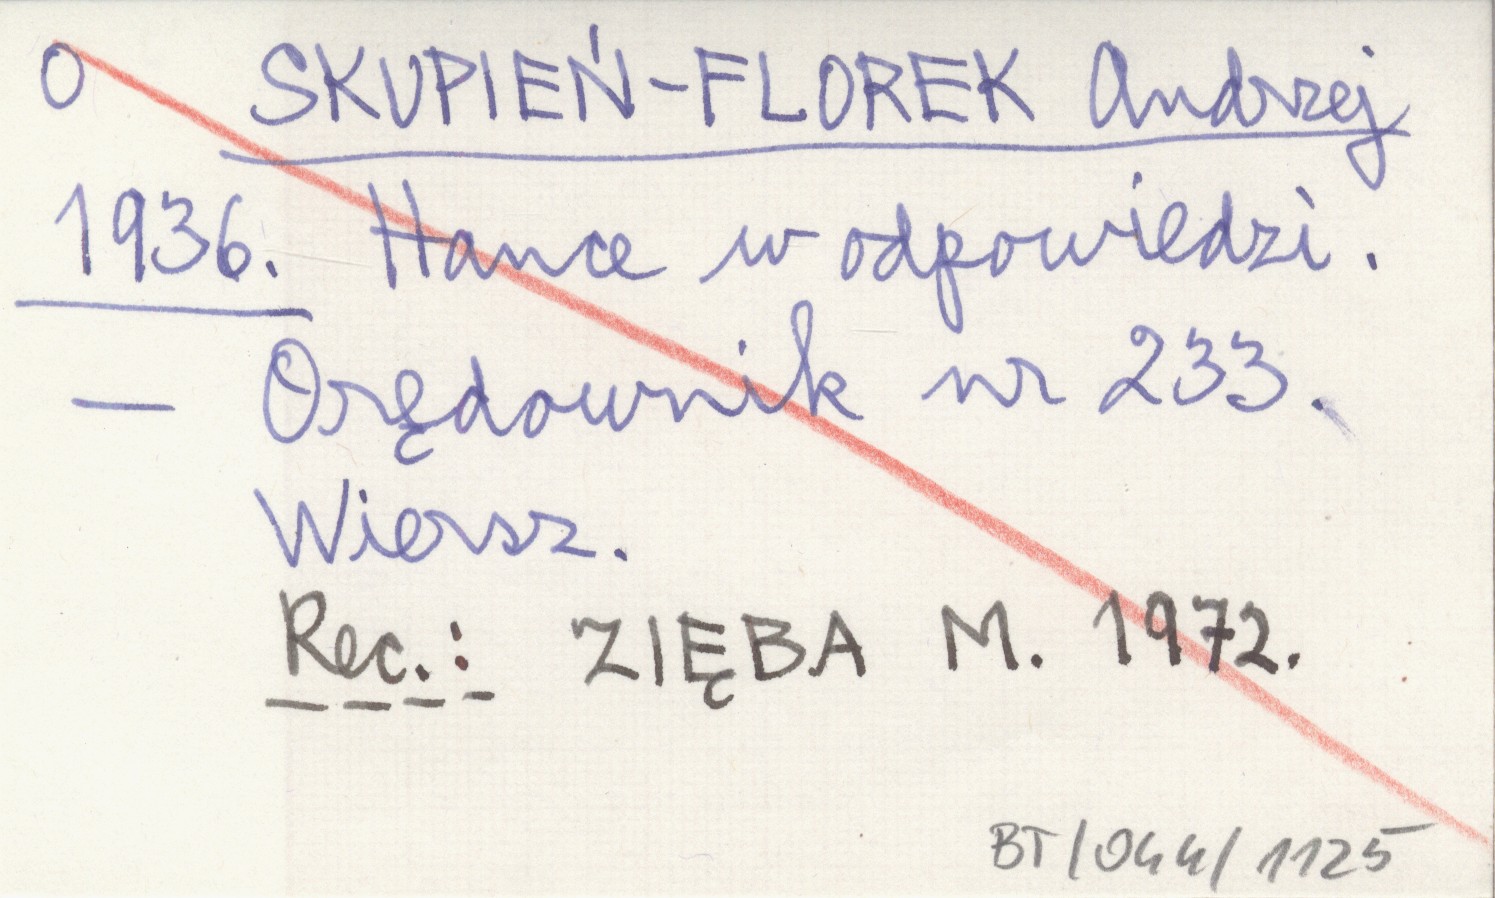 O SKUPIEŃ-FLOREK Andrzej
1936. Hance w odpowiedzi.
— Orędownik nr 233.
Wiersz.
Rec.: ZIĘBA M. 1972.
BT/044/1125